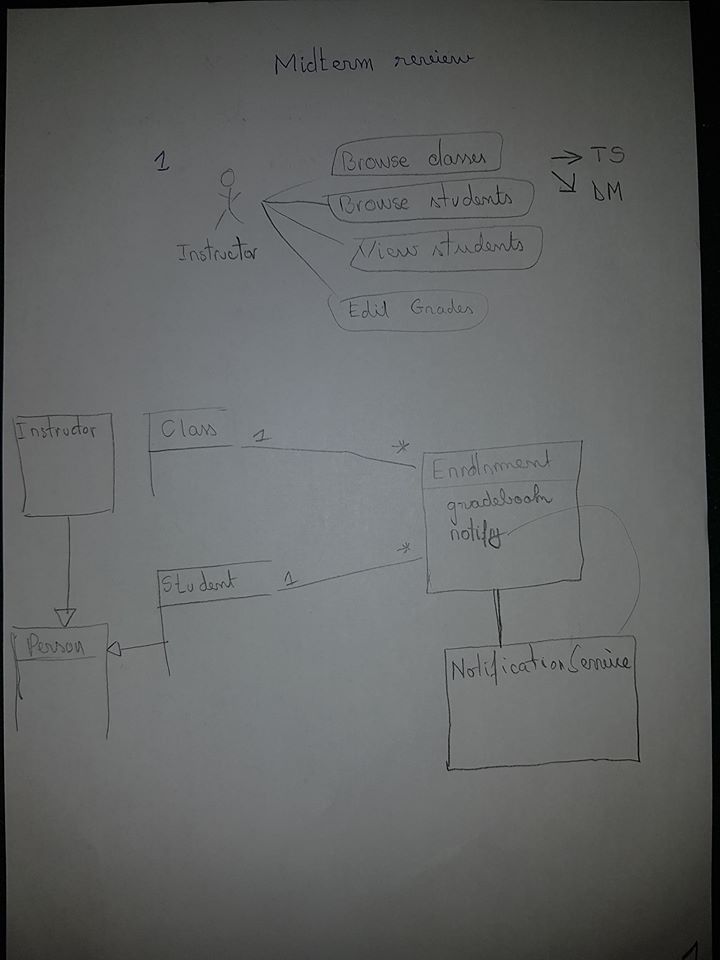 Midterm review
1
Browse classes
→ TS
Browse students
↘ DM
Instructor
View students
Edit Grades
Instructor
Class
1
*
Enrolnment
gradebook
notify
*
Student
1
Person
NotificationService